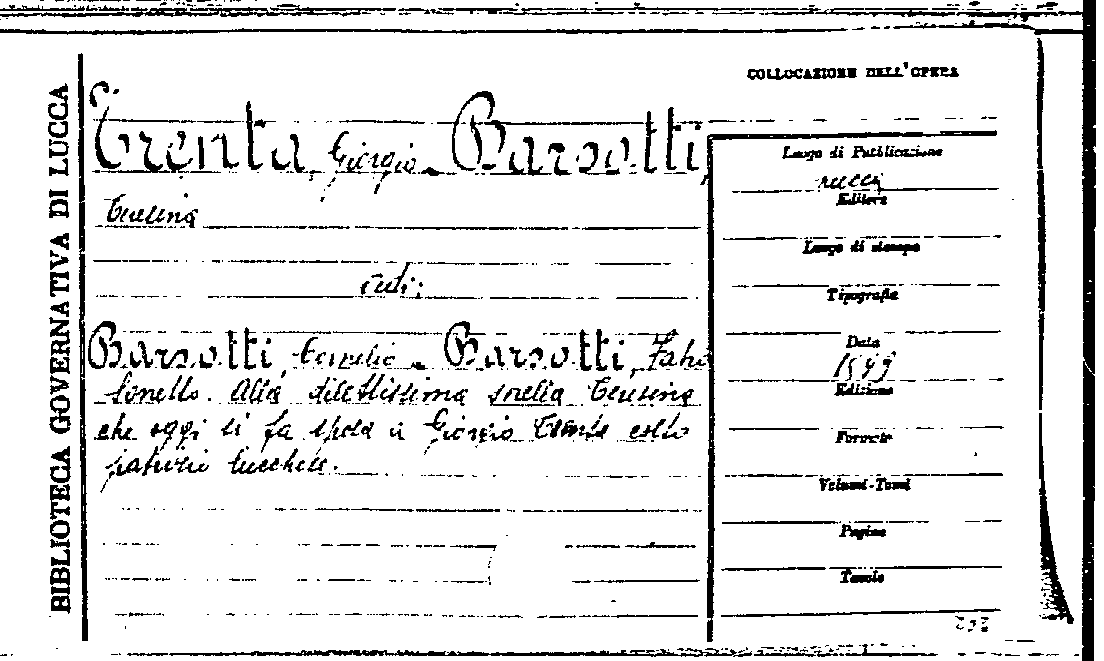 BIBLIOTECA GOVERNATIVA DI LUCCA
COLLOCAZIONE DELL'OPERA
Trenta, Giorgio - Barsotti,
Teresina
vedi:
Barsotti, - Barsotti,
Sonetto. Alla dilettissima sorella Teresina
che oggi si fa sposa a Giorgio Trenta colto
patrizio lucchese.
Luogo di Pubblicazione
Lucca
Editore
Luogo di stampa
Tipografia
Data
Edizione
Formato
Volumi-Tomi
Pagine
Tavole